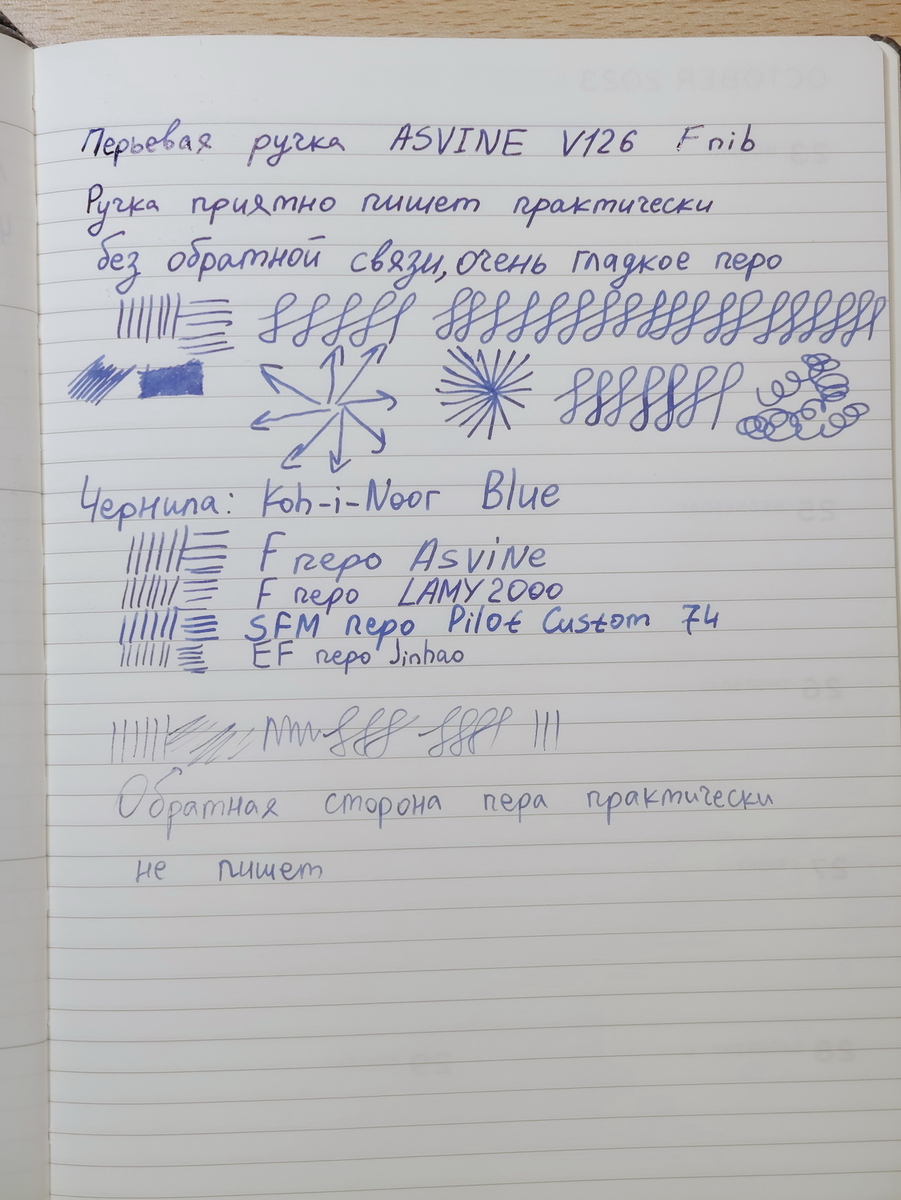 Перьевая ручка ASVINE V126 F nib
Ручка приятно пишет практически
без обратной связи, очень гладкое перо
Чернила: Koh-i-Noor Blue
F перо Asvine
F перо LAMY 2000
SFM перо Pilot Custom 74
EF перо Jinhao
Обратная сторона пера практически
не пишет